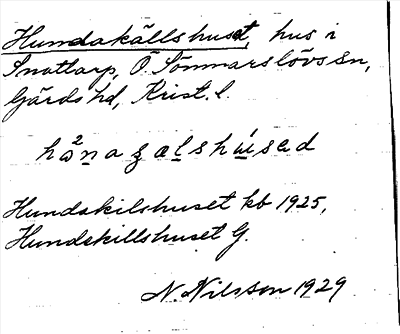 Hundakällshuset, hus i
Snattarp, Ö. Sönnarslövs sn,
Gärds hd, Krist. l.
Hundskilshuset kb 1925,
Hundskillshuset G.
N. Nilsson 1929